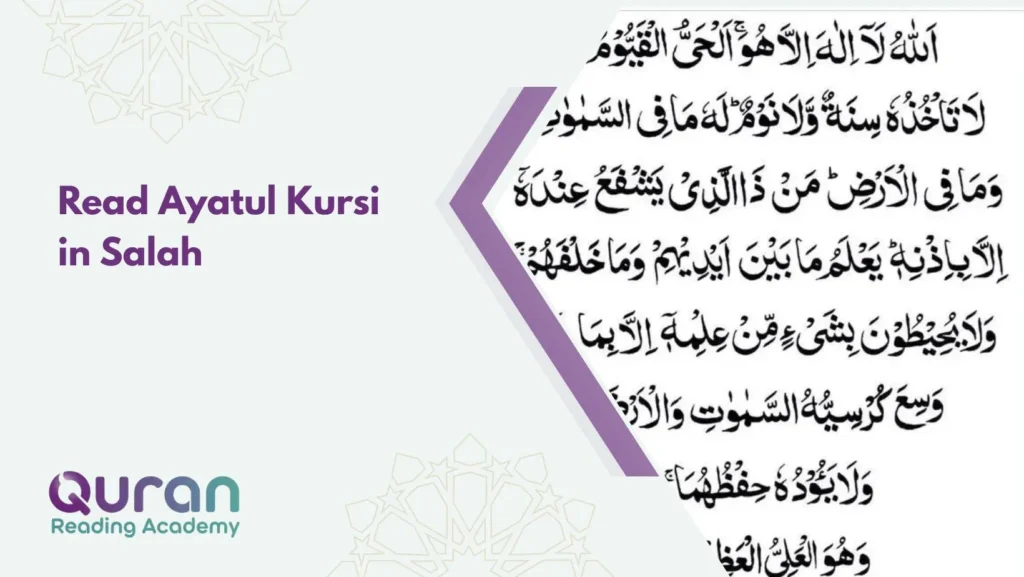 Read Ayatul Kursi
in Salah
Quran
Reading Academy
اَللّٰهُ لَاۤ اِلٰهَ اِلَّا هُوَۚ اَلْحَیُّ الْقَیُّوْمُ
لَا تَاْخُذُهٗ سِنَةٌ وَّلَا نَوْمٌؕ لَهٗ مَا فِی السَّمٰوٰتِ
وَمَا فِی الْاَرْضِؕ مَنْ ذَا الَّذِیْ یَشْفَعُ عِنْدَهٗۤ
اِلَّا بِاِذْنِهٖؕ یَعْلَمُ مَا بَیْنَ اَیْدِیْهِمْ وَمَا خَلْفَهُمْۚ
وَلَا یُحِیْطُوْنَ بِشَیْءٍ مِّنْ عِلْمِهٖۤ اِلَّا بِمَا
وَسِعَ كُرْسِیُّهُ السَّمٰوٰتِ
وَلَا یَـُٔوْدُهٗ حِفْظُهُمَاۚ
وَهُوَ الْعَلِیُّ